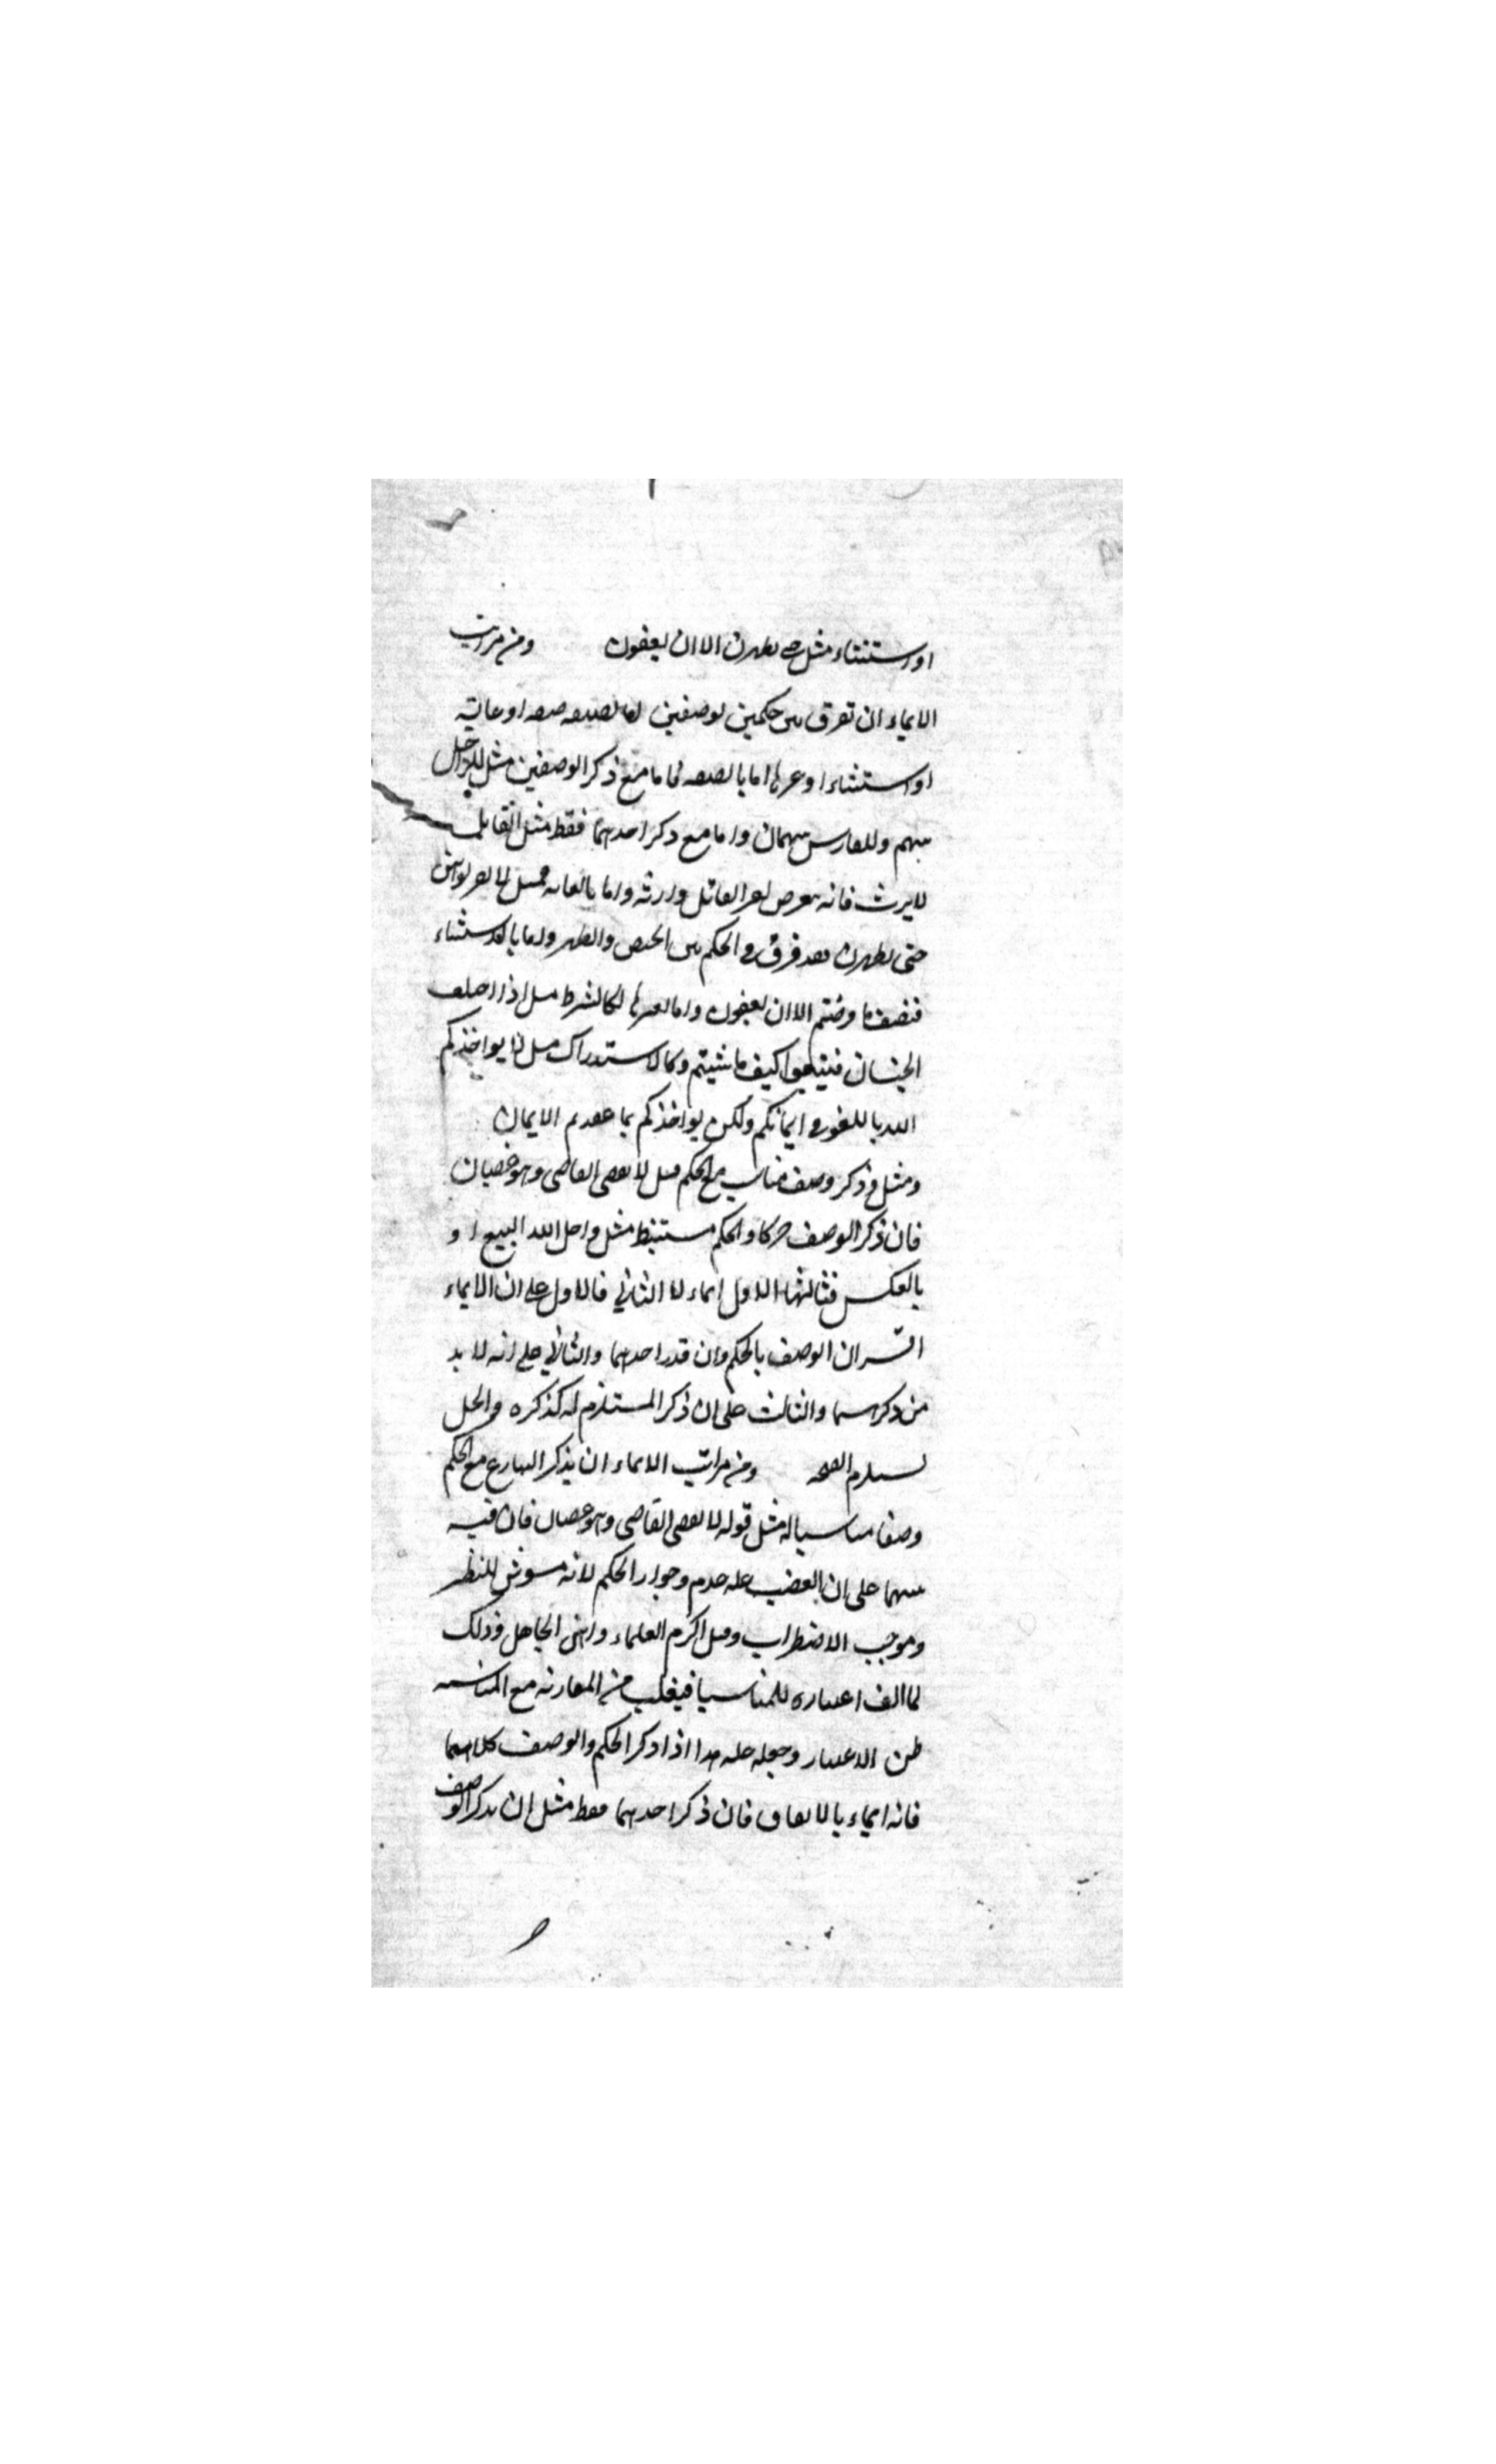 او استثناء مثل حتى يطهرن الا ان يعفون ومن مراتب
الايماء ان تفرق بين حكمين بوصفين اما بصيغه صفه او غاية
او استثناء او غيرها اما بالصفه فاما مع ذكر الوصفين مثل للراجل
سهم وللفارس سهمان واما مع ذكر احدهما فقط مثل القاتل
لا يرث فانه لم يعرض لغير القاتل وارثه واما بالغايه فمثل لا تقربوهن
حتى يطهرن فقد فرق في الحكم بين الحيض والطهر واما بالاستثناء
فنصف ما فرضتم الا ان يعفون واما بغيرها فكالشرط مثل اذا اختلف
الجنسان فبيعوا كيف ما شيتم وكالاستدراك مثل لا يواخذكم
الله باللغو في ايمانكم ولكن يواخذكم بما عقدتم الايمان
ومثل ذكر وصف مناسب مع الحكم مثل لا يقضى القاضى وهو غضبان
فان ذكر الوصف صريحا والحكم مستنبط مثل واحل الله البيع او
بالعكس فثالثها الاول ايماء لا الثاني فالاول على ان الايماء
اقتران الوصف بالحكم وان قدر احدهما والثاني على انه لا بد
من ذكرهما والثالث على ان ذكر المستلزم له كذكره والحل
يستلزم الصحه ومن مراتب الايماء ان يذكر الشارع مع الحكم
وصفا مناسبا له مثل قوله لا يقضى القاضى وهو غضبان فان فيه
تنبيها على ان الغضب عله عدم جواز الحكم لانه مشوش للنظر
وموجب الاضطراب ومثل اكرم العلماء واهن الجاهل وذلك
لما الف اعتباره للمناسبات فيغلب من المقارنه مع المناسبه
ظن الاعتبار وجعله عله هذا اذا ذكر الحكم والوصف كلاهما
فانه ايماء بالاتفاق فان ذكر احدهما فقط مثل ان يذكر الوصف